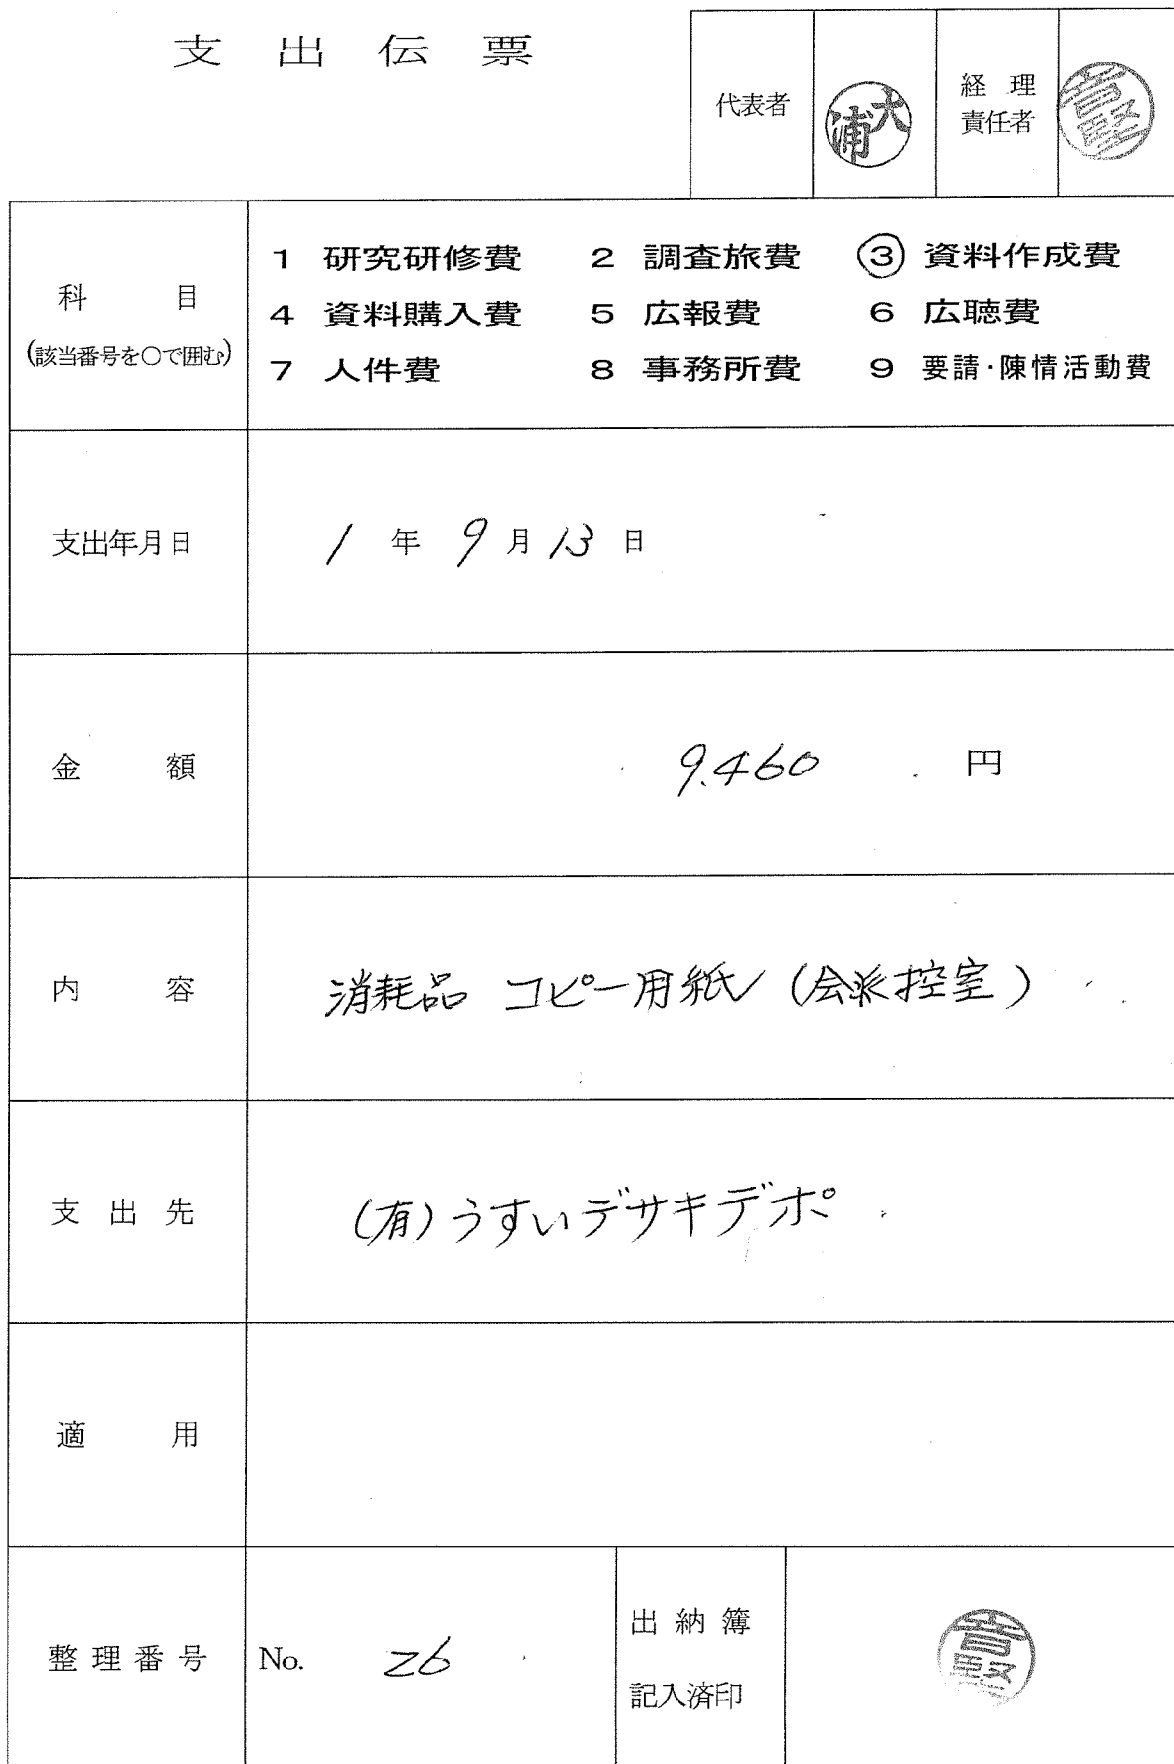 支出伝票
代表者
大浦
経理
責任者
科目
(該当番号を○で囲む)
1 研究研修費 2 調査旅費 ③ 資料作成費
4 資料購入費 5 広報費 6 広聴費
7 人件費 8 事務所費 9 要請・陳情活動費
支出年月日 1年9月13日
金額 9.460円
内容 消耗品 コピー用紙 (会派控室)
支出先 (有)うすいデサキデポ
適用
整理番号 No. 26
出納簿
記入済印